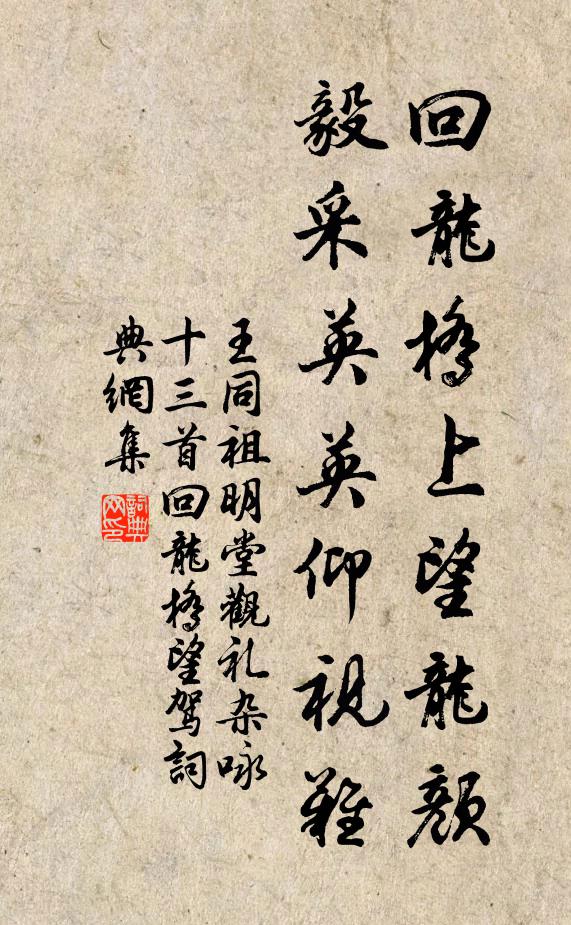 回龍橋上望龍顔
毅采英英仰視難
王同祖明堂觀礼杂咏
十三首回龍橋望駕詞
典網集
詞典网印